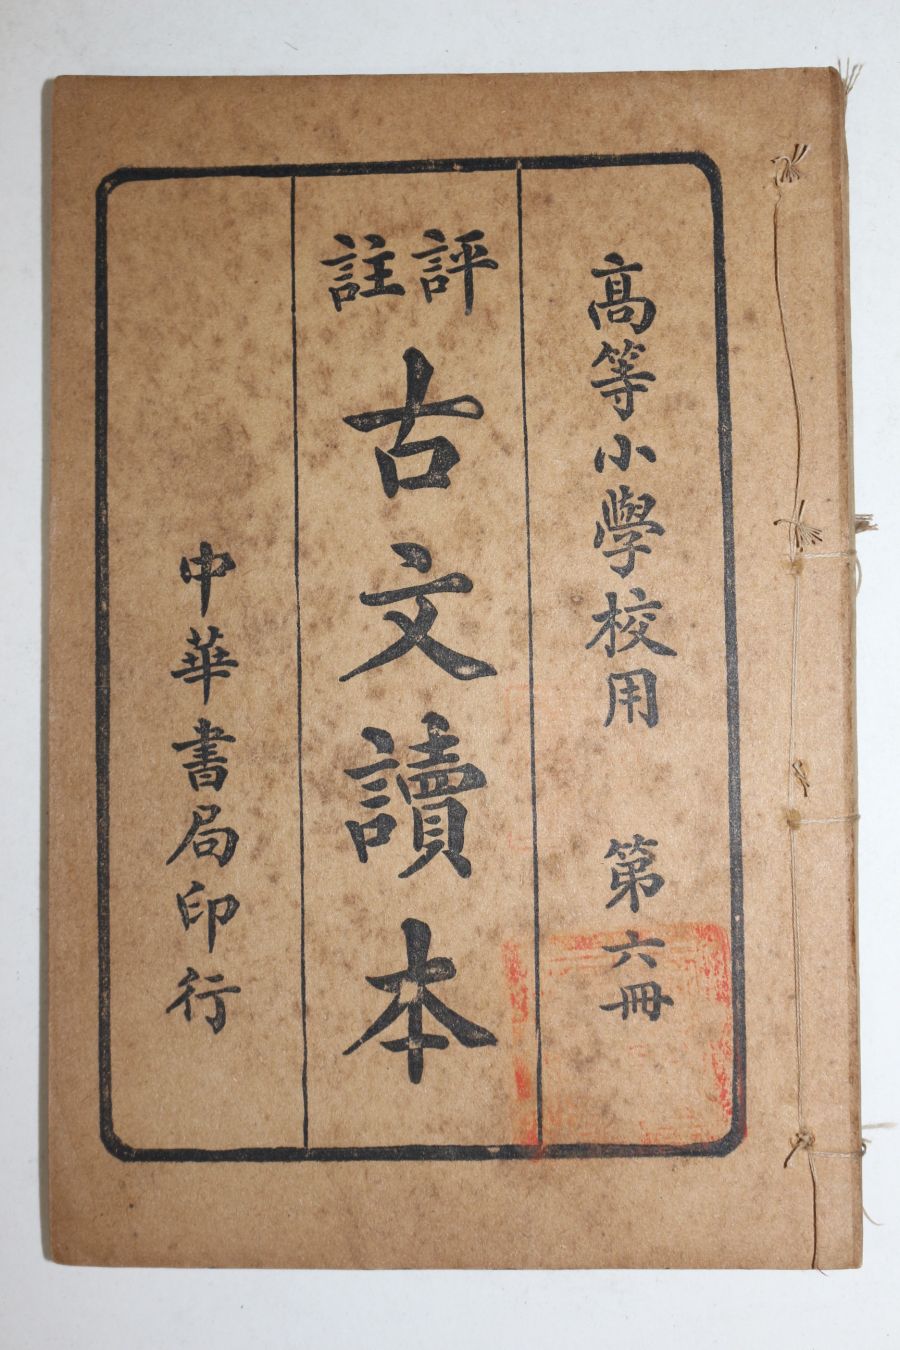 高等小學校用 第六冊
評註
古文讀本
中華書局印行